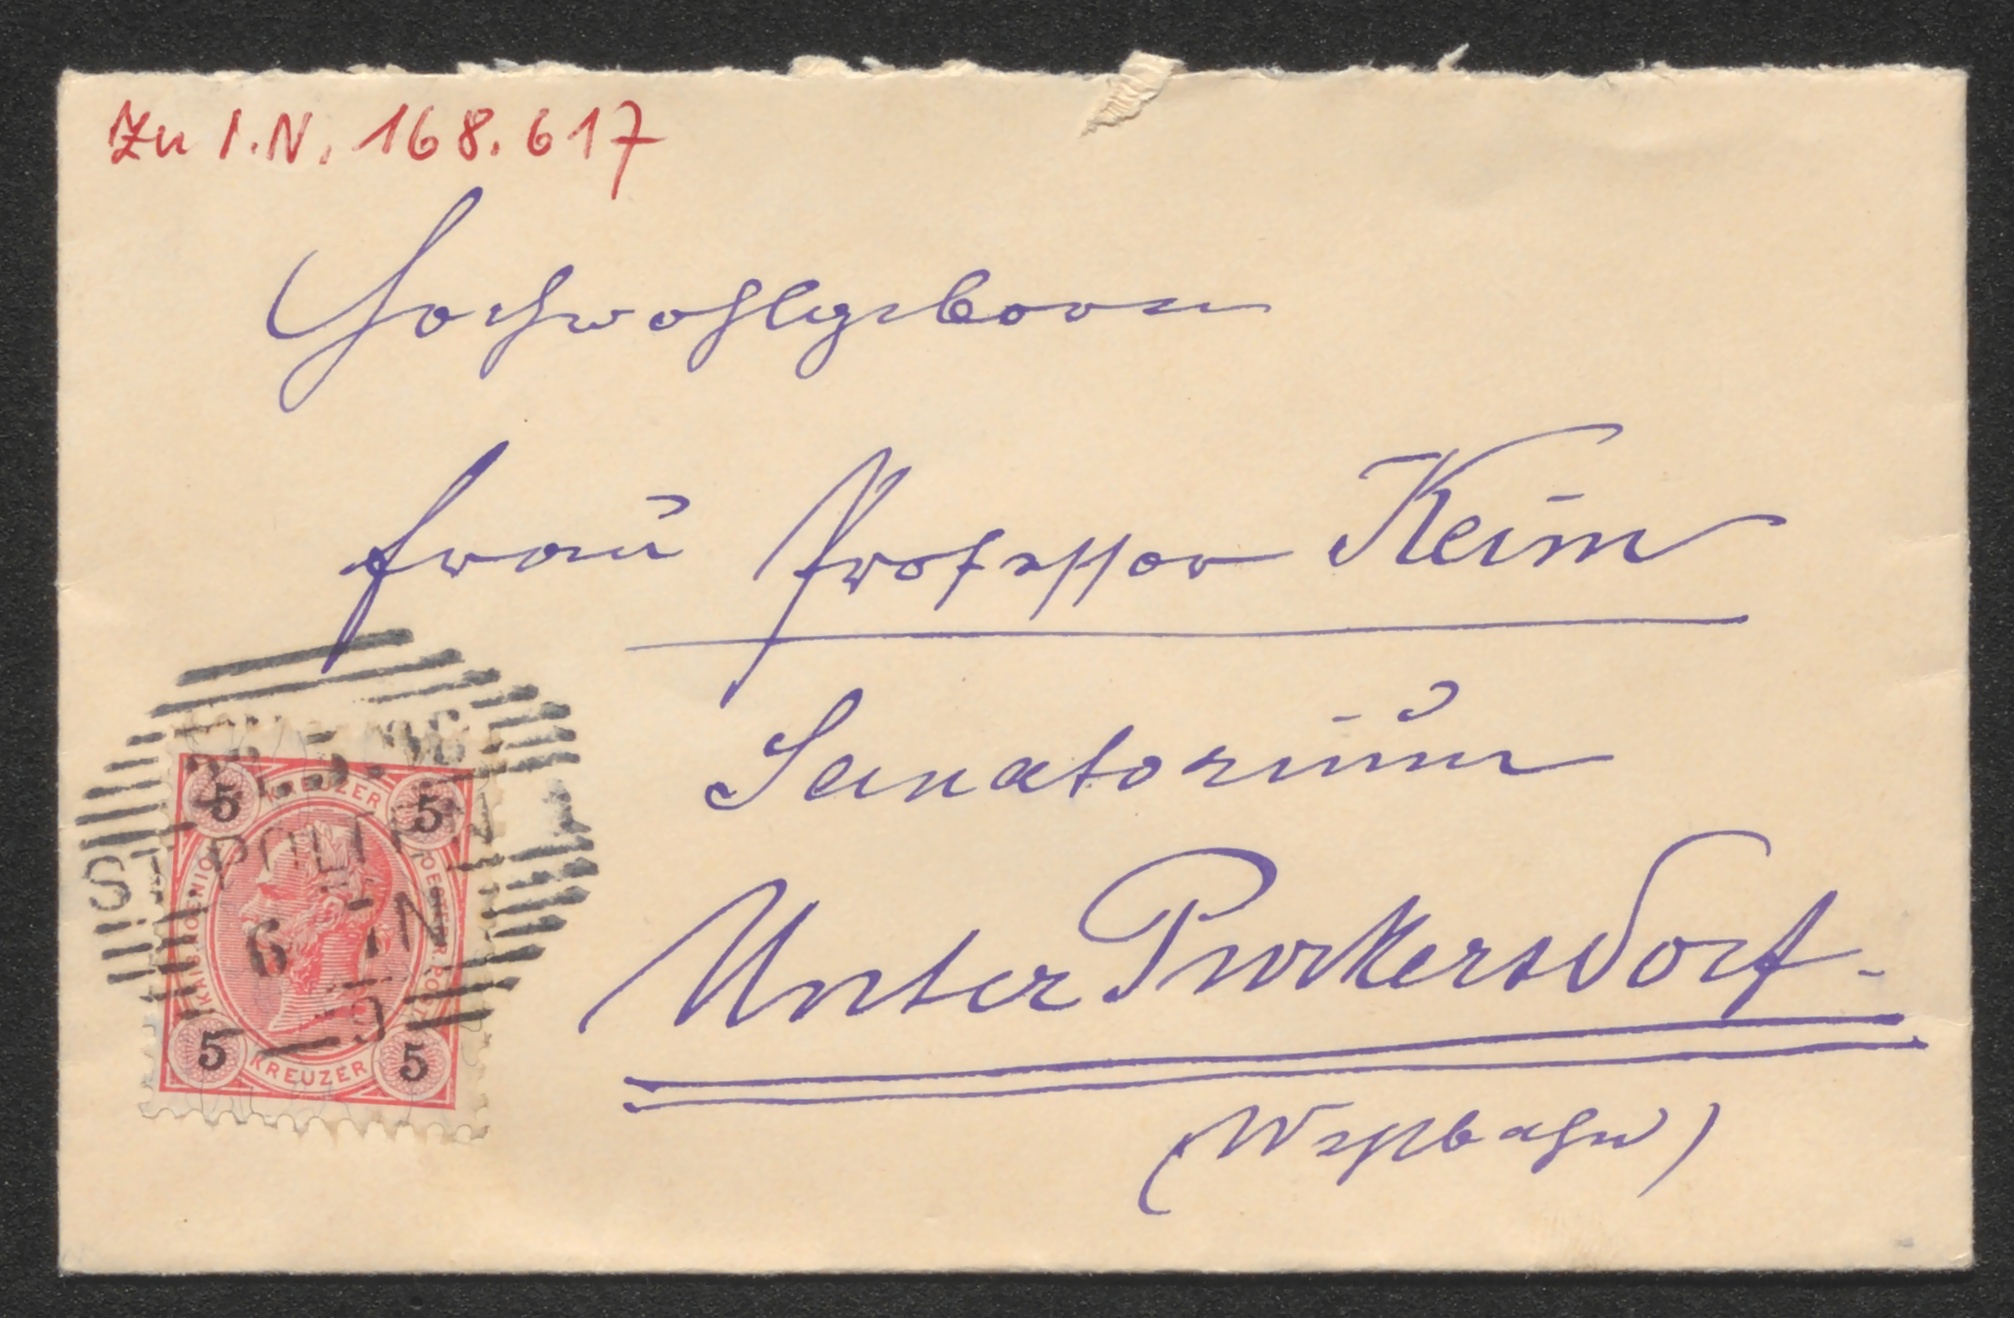 Zu I.N. 168.617
Hochwohlgeboren
Frau Professor Keim
Sanatorium
Unter Purkersdorf-
(Westbahn)
5 KREUZER 5
KAIS. KOENIGL. OESTERR. POST
5 KREUZER 5
5.96
ST. POELTEN
6 N